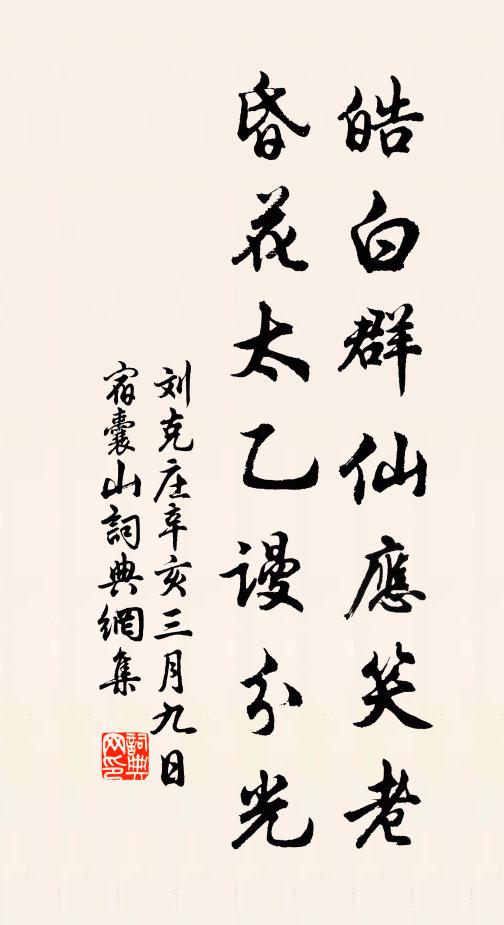 皓白群仙應笑老
昏花太乙謾分光
刘克庄辛亥三月九日
宿囊山詞典網集
詞典
网印